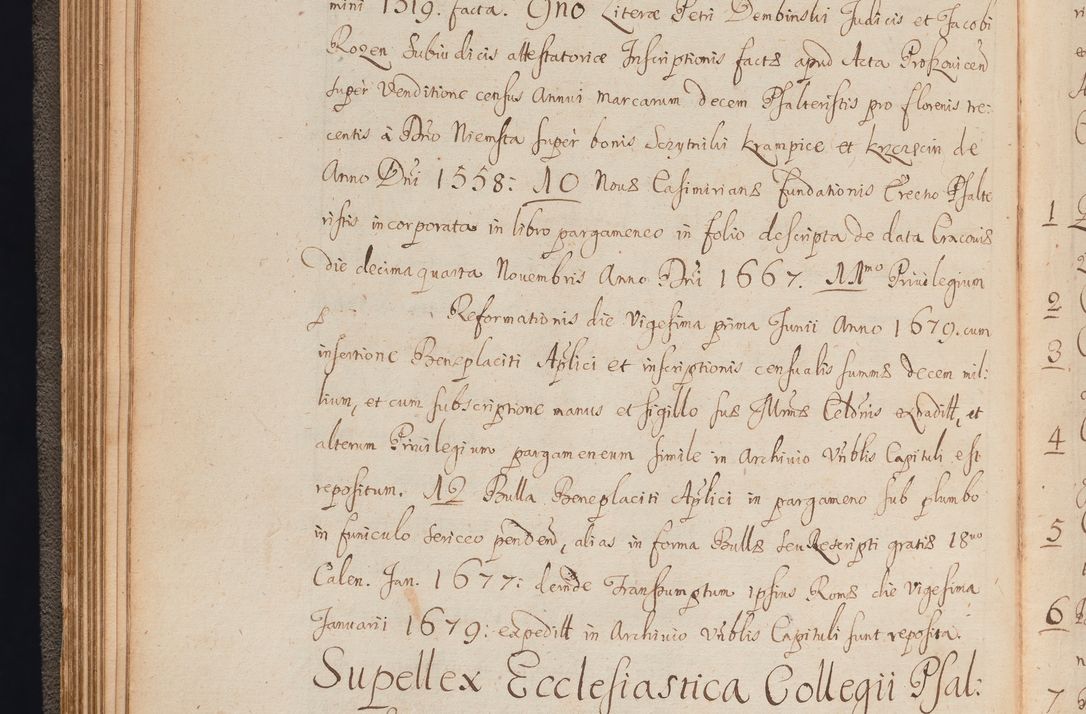 mini 1519. facta. 9no Literæ Petri Dembinski Judicis et Jacobi
Rozen Subiudicis attestatoriæ Inscriptionis factæ apud Acta Proszovicen
super Venditione census Annui marcarum decem Psalteristis pro florenis tre:
centis à Dno Niemsta super bonis Sczytniki Krampice et Krzczecin de
Anno Dni 1558: 10 Novæ Casimirianæ fundationis Erectio Psalte
ristis incorporata in libro pargameneo in folio descripta de data Cracoviæ
die decima quarta Novembris Anno Dni 1667. 11mo Privilegium
Reformationis die Vigesima prima Junii Anno 1679. cum
insertione Beneplaciti Aplici et inscriptionis censualis summæ decem mil:
lium, et cum subscriptione manus et sigillo suæ Illmæ Celdnis extradilt, et
alterum Privilegium pargameneum simile in Archivio Vnblis Capituli est
repositum. 12 Bulla Beneplaciti Aplici in pargameno sub plumbo
in funiculo sericeo penden, alias in forma Bullæ seu Rescripti gratiæ 18vo
Calen. Jan. 1677: deinde Transsumptum ipsius Romæ die Vigesima
Januarii 1679: expedilt in Archivio Vnblis Capituli sunt reposita.
Supellex Ecclesiastica Collegii Psal:
1
2
3
4
5
6
7